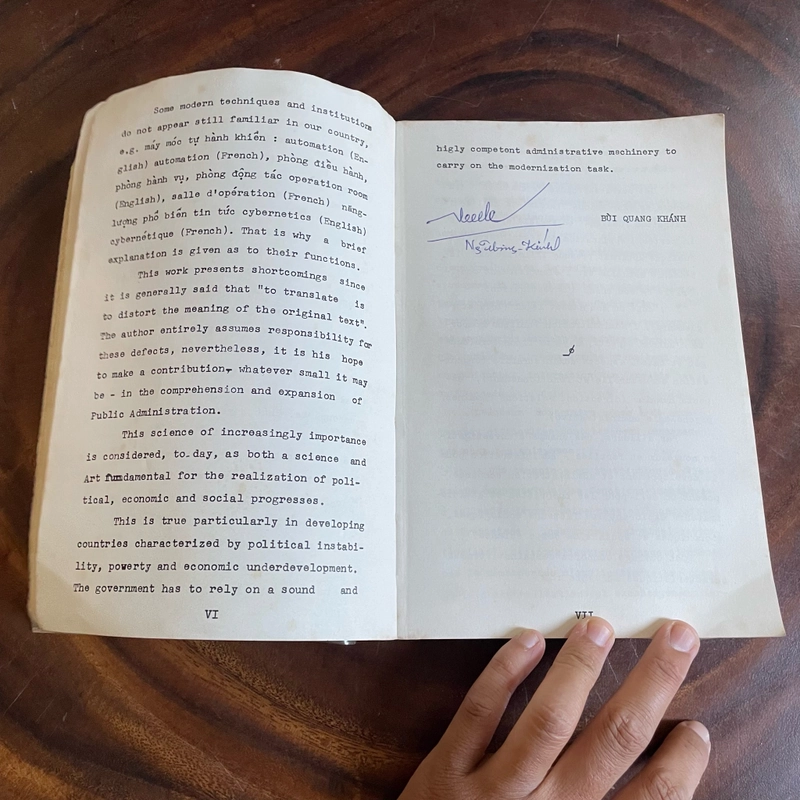 Some modern techniques and institutions
do not appear still familiar in our country,
e.g. máy móc tự hành khiển : automation (En-
glish) automation (French), phòng điều hành,
phòng hành vụ, phòng động tác operation room
(English), salle d'opération (French) năng-
lượng phổ biến tin tức cybernetics (English)
cybernétique (French). That is why a brief
explanation is given as to their functions.
This work presents shortcomings since
it is generally said that "to translate is
to distort the meaning of the original text".
The author entirely assumes responsibility for
these defects, nevertheless, it is his hope
to make a contribution, whatever small it may
be - in the comprehension and expansion of
Public Administration.
This science of increasingly importance
is considered, to-day, as both a science and
Art fundamental for the realization of poli-
tical, economic and social progresses.
This is true particularly in developing
countries characterized by political instabi-
lity, powerty and economic underdevelopment.
The government has to rely on a sound and
VI
higly competent administrative machinery to
carry on the modernization task.
BÙI QUANG KHÁNH
VII